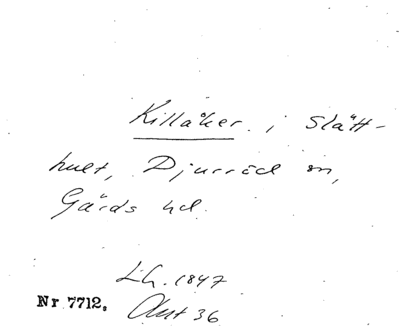 Killåker. i Slätt-
hult, Djurröd sn,
Gärds hd.
Lh. 1847
Nr 7712. Akt 36